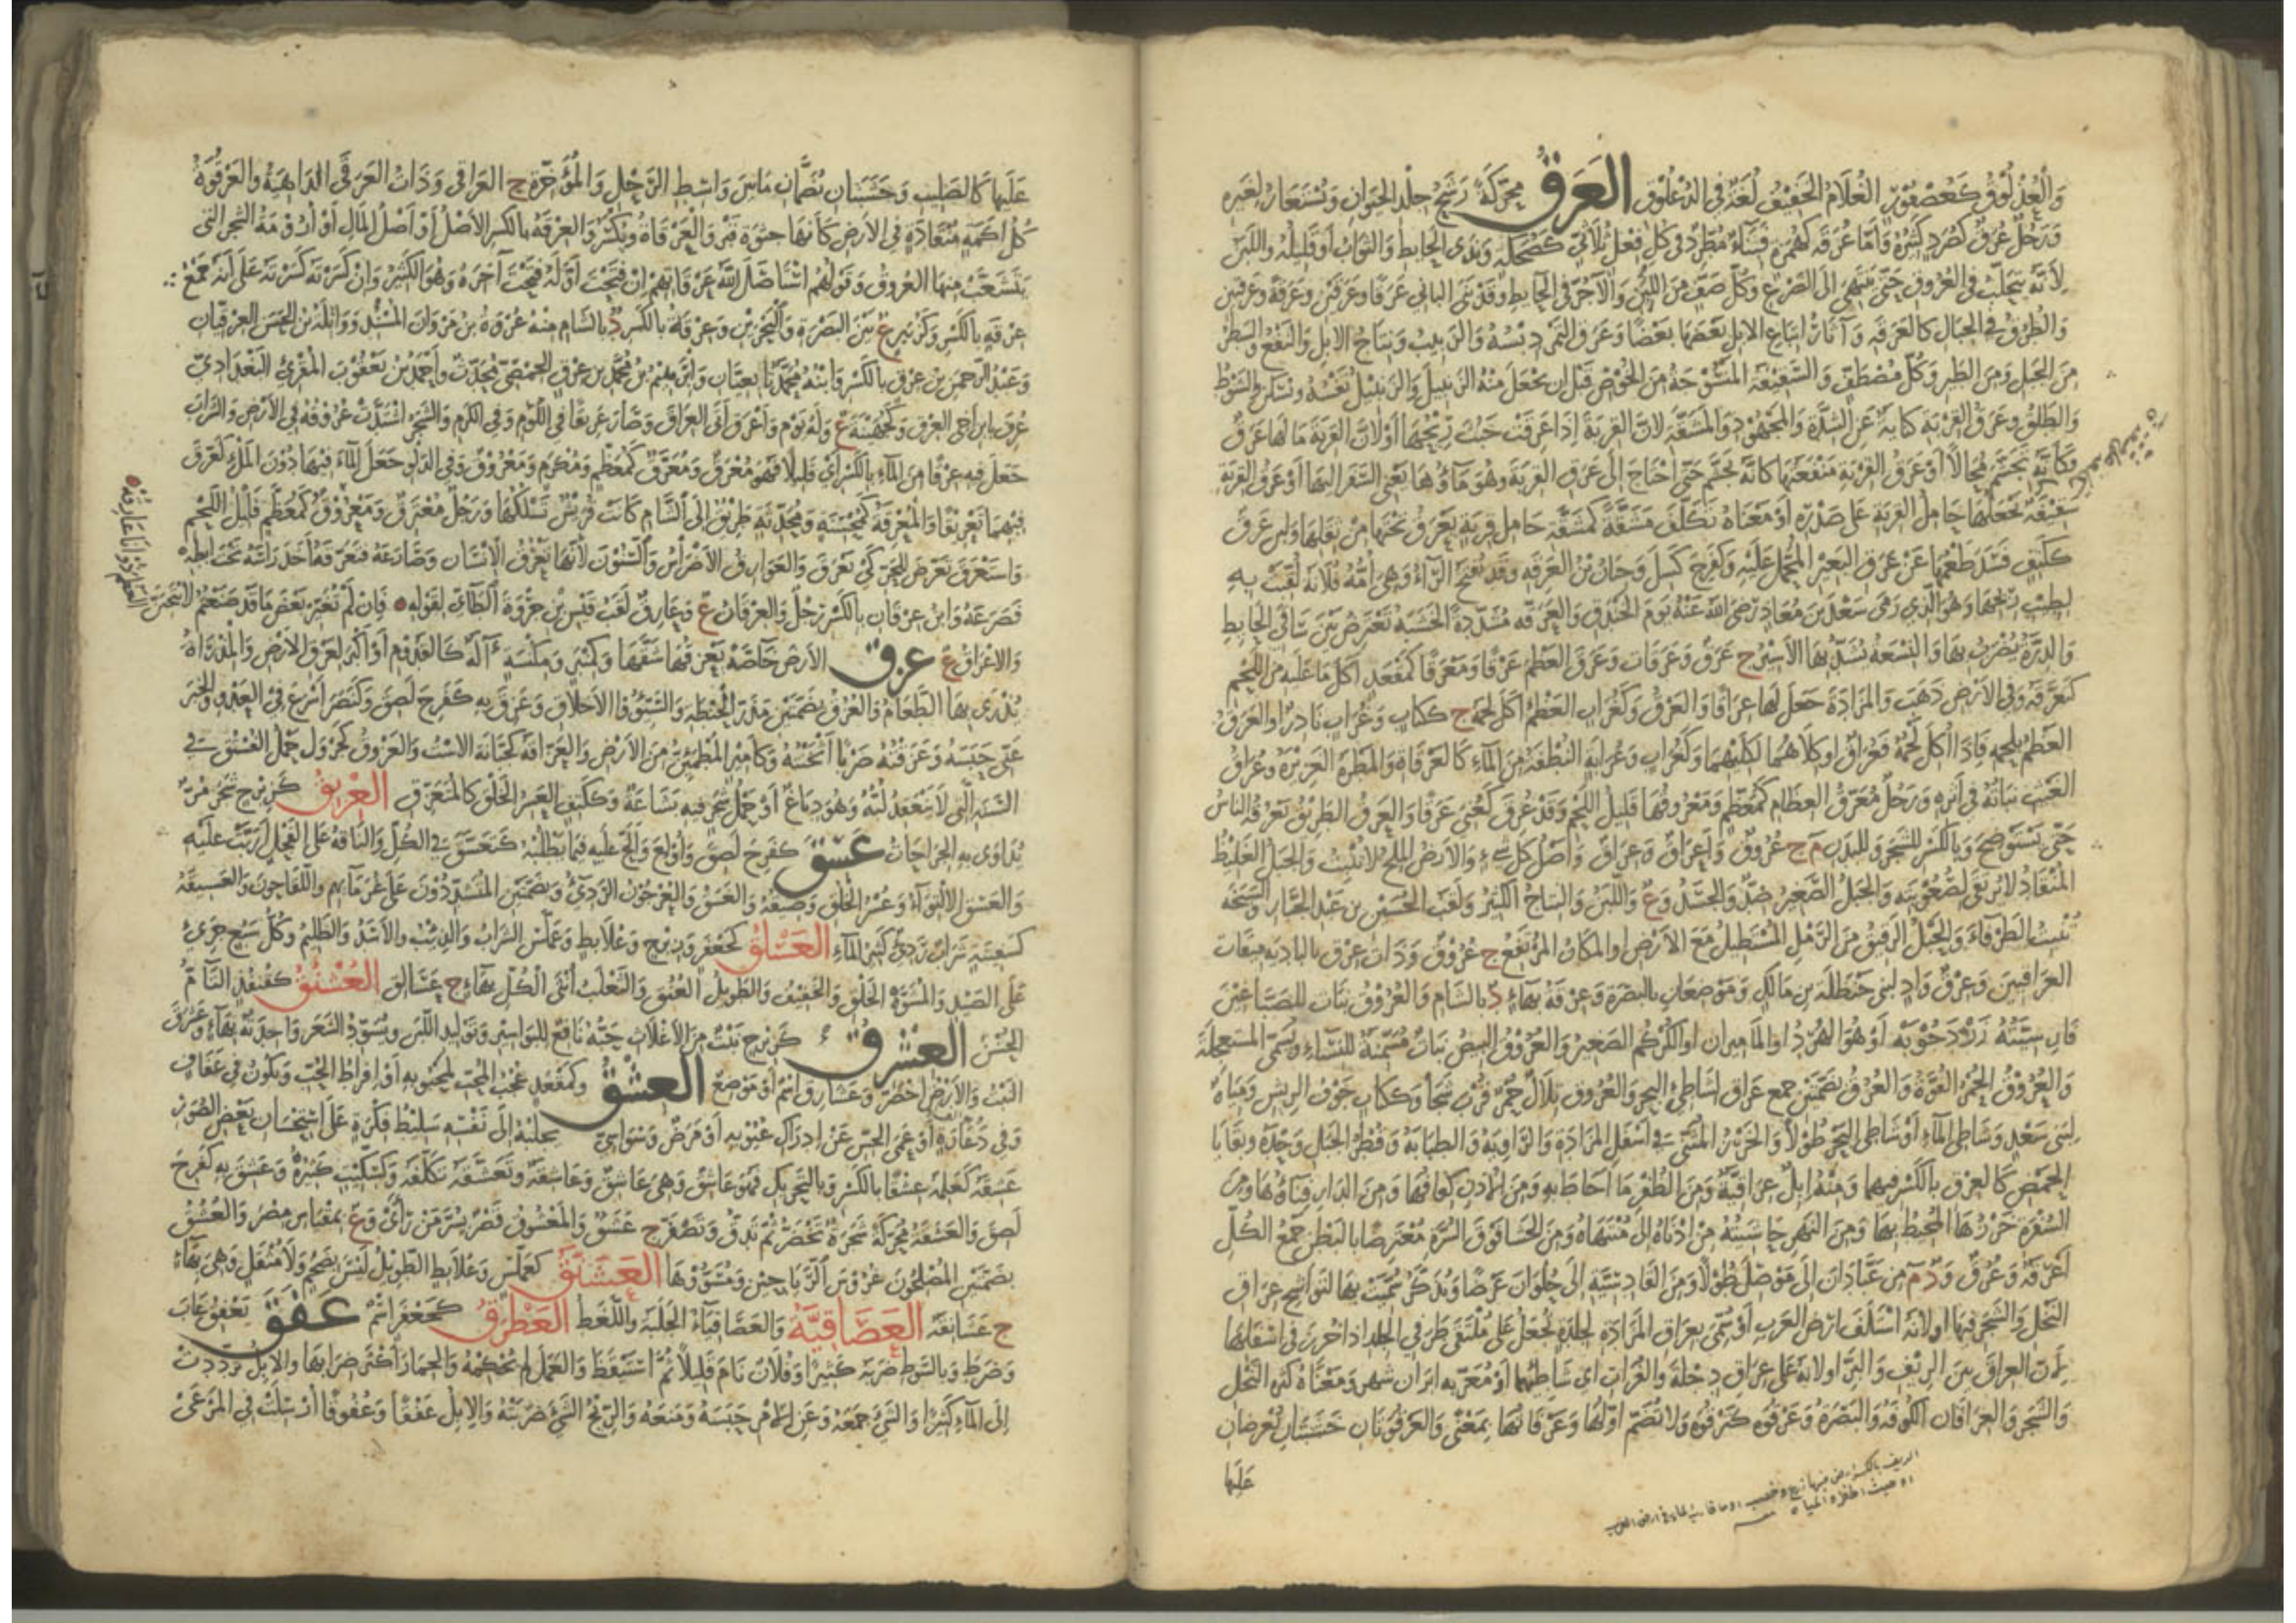 وَالْعُذْلُوقُ كَعُصْفُورٍ الغُلَامُ الخَفِيفُ لُغَةٌ فِي الذُّعْلُوقِ العَرَقُ مُحَرَّكَةً رَشْحُ جِلْدِ الحَيَوَانِ وَيُسْتَعَارُ لِغَيْرِهِ
وَرَجُلٌ عُرَقٌ كَصُرَدٍ كَثِيرُهُ وَأَمَّا عُرَقَةٌ كَهُمَزَةٍ فَبِنَاءٌ مُطَّرِدٌ فِي كُلِّ فِعْلٍ ثُلَاثِيٍّ كَضُحَكَةٍ وَنَدَى الحَائِطِ وَالثَوَابُ أَوْ قَلِيلُهُ وَاللَّبَنُ
لِأَنَّهُ يَتَحَلَّبُ فِي العُرُوقِ حَتَّى يَنْتَهِيَ إِلَى الضَّرْعِ وَكُلُّ صَفٍّ مِنَ اللَّبِنِ وَالآجُرِّ فِي الحَائِطِ وَقَدْ بَنَى البَانِي عَرَقًا وَعَرَقَيْنِ وَعَرَقَةً وَعَرَقَتَيْنِ
وَالطُّرُقُ فِي الجِبَالِ كَالعَرَقَةِ وَآثَارُ اتِّبَاعِ الإِبِلِ بَعْضِهَا بَعْضًا وَعَرَقُ التَّمْرِ دِبْسُهُ وَالزَّبِيبُ وَنِتَاجُ الإِبِلِ وَالنَّفْعُ وَالسَّطْرُ
مِنَ الخَيْلِ وَمِنَ الطَّيْرِ وَكُلُّ مُصْطَفٍّ وَالسَّفِيفَةُ المَنْسُوجَةُ مِنَ الخُوصِ قَبْلَ أَنْ يُجْعَلَ مِنْهُ الزَّبِيلُ وَالزَّبِيلُ نَفْسُهُ وَيُسَكَّنُ وَالشَّوْطُ
وَالطَّلَقُ وَعَرَقُ القِرْبَةِ كِنَايَةٌ عَنِ الشِّدَّةِ وَالمَجْهُودِ وَالمَشَقَّةِ لِأَنَّ القِرْبَةَ إِذَا عَرِقَتْ خَبُثَ رِيحُهَا أَوْ لِأَنَّ القِرْبَةَ مَا لَهَا عَرَقٌ
فَكَأَنَّهُ تَجَشَّمَ مُحَالًا أَوْ عَرَقُ القِرْبَةِ مَنْقَعَتُهَا كَأَنَّهُ تَجَشَّمَ حَتَّى احْتَاجَ إِلَى عَرَقِ القِرْبَةِ وَهُوَ مَاؤُهَا يَعْنِي السَّفَرَ إِلَيْهَا أَوْ عَرَقُ القِرْبَةِ
سَفِيفَةٌ يَجْعَلُهَا حَامِلُ القِرْبَةِ عَلَى صَدْرِهِ أَوْ مَعْنَاهُ تَكَلَّفَ مَشَقَّةً كَمَشَقَّةِ حَامِلِ قِرْبَةٍ يَعْرَقُ تَحْتَهَا مِنْ ثِقَلِهَا وَلَبَنٌ عَرِقٌ
كَكَتِفٍ فَسَدَ طَعْمُهُ عَنْ عَرَقِ البَعِيرِ المُحَمَّلِ عَلَيْهِ وَكَفَرِحَ كَسِلَ وَحِبَّانُ بْنُ العَرِقَةِ وَقَدْ تُفْتَحُ الرَّاءُ وَهِيَ أُمُّهُ قِلَابَةُ لُقِّبَتْ بِهِ
لِطِيبِ رِيحِهَا وَهُوَ الَّذِي رَمَى سَعْدَ بْنَ مُعَاذٍ رَضِيَ اللهُ عَنْهُ يَوْمَ الخَنْدَقِ وَالعَرَقَةُ مُشَدَّدَةً الخَشَبَةُ تُعْرَضُ بَيْنَ سَافَيِ الحَائِطِ
وَالدِّرَّةُ يُضْرَبُ بِهَا وَالنِّسْعَةُ يُشَدُّ بِهَا الأَسِيرُ ج عَرَقٌ وَعَرَقَاتٌ وَعَرَقَ العَظْمَ عَرْقًا وَمَعْرَقًا كَمَقْعَدٍ أَكَلَ مَا عَلَيْهِ مِنَ اللَّحْمِ
كَتَعَرَّقَهُ وَفِي الأَرْضِ ذَهَبَ وَالمَزَادَةَ جَعَلَ لَهَا عِرَاقًا وَالعَرْقُ وَكَغُرَابٍ العَظْمُ أُكِلَ لَحْمُهُ ج كَكِتَابٍ وَغُرَابٍ نَادِرٌ أَوِ العَرْقُ
العَظْمُ بِلَحْمِهِ فَإِذَا أُكِلَ لَحْمُهُ فَعُرَاقٌ أَوْ كِلَاهُمَا لِكِلَيْهِمَا وَكَغُرَابٍ وَغُرَابَةٍ النُّطْفَةُ مِنَ المَاءِ كَالعَرْقَاةِ وَالمَطْرَةُ الغَزِيرَةُ وَعُرَاقُ
الغَيْثِ نَبَاتُهُ فِي أَثَرِهِ وَرَجُلٌ مُعَرَّقُ العِظَامِ كَمُعَظَّمٍ وَمَعْرُوقُهَا قَلِيلُ اللَّحْمِ وَقَدْ عُرِقَ كَعُنِيَ عَرْقًا وَالعَرْقُ الطَّرِيقُ يَعْرُقُهُ النَّاسُ
حَتَّى يَسْتَوْضِحَ وَبِالكَسْرِ لِلشَّجَرِ وَلِلبَدَنِ م ج عُرُوقٌ وَأَعْرَاقٌ وَعِرَاقٌ وَأَصْلُ كُلِّ شَيْءٍ وَالأَرْضُ المِلْحُ لَا تُنْبِتُ وَالجَبَلُ الغَلِيظُ
المُنْقَادُ لَا يُرْتَقَى لِصُعُوبَتِهِ وَالجَبَلُ الصَّغِيرُ ضِدٌّ وَالجَسَدُ وَع وَاللَّبَنُ وَالنِّتَاجُ الكَثِيرُ وَلَقَبُ الحُسَيْنِ بْنِ عَبْدِ الجَبَّارِ وَالسَّبَخَةُ
تُنْبِتُ الطَّرْفَاءَ وَالحَبْلُ الرَّقِيقُ مِنَ الرَّمْلِ المُسْتَطِيلُ مَعَ الأَرْضِ أَوِ المَكَانُ المُرْتَفِعُ ج عُرُوقٌ وَذَاتُ عِرْقٍ بِالبَادِيَةِ مِيقَاتُ
العِرَاقِيِّينَ وَعِرْقٌ وَادٍ لِبَنِي حَنْظَلَةَ بْنِ مَالِكٍ وَمَوْضِعَانِ بِالبَصْرَةِ وَعِرْقَةُ بِهَاءٍ د بِالشَّامِ وَالعُرُوقُ نَبَاتٌ لِلصَّبَّاغِينَ
فَارِسِيَّتُهُ زَرْدَجُوبَهْ أَوْ هُوَ الهُرْدُ أَوِ المَامِيرَانُ أَوِ الكُرْكُمُ الصَّغِيرُ وَالعُرُوقُ البِيضُ نَبَاتٌ مُسَمِّنَةٌ لِلنِّسَاءِ وَتُسَمَّى المُسْتَعْجِلَةَ
وَالعُرُوقُ الحُمْرُ الفُوَّةُ وَالعُرُقُ بِضَمَّتَيْنِ جَمْعُ عِرَاقٍ لِشَاطِئِ البَحْرِ وَالعُرُوقُ تِلَالٌ حُمْرٌ قُرْبَ سَجَا وَكَكِتَابٍ جَوْفُ الرِّيشِ وَمِيَاهٌ
لِبَنِي سَعْدٍ وَشَاطِئُ المَاءِ أَوْ شَاطِئُ البَحْرِ طُولًا وَالخَرْزُ المَثْنِيُّ فِي أَسْفَلِ المَزَادَةِ وَالرَّاوِيَةِ وَالطِّبَابَةُ وَقُطْرُ الجَبَلِ وَحْدَهُ وَبَقَايَا
الحَمْضِ كَالعِرْقِ بِالكَسْرِ فِيهِمَا وَمِنْهُ إِبِلٌ عِرَاقِيَّةٌ وَمِنَ الظُّفُرِ مَا أَحَاطَ بِهِ وَمِنَ الأُذُنِ كِفَافُهَا وَمِنَ الدَّارِ فِنَاؤُهَا وَمِنَ
السُّفْرَةِ خَرْزُهَا المُحِيطُ بِهَا وَمِنَ النَّهْرِ حَاشِيَتُهُ مِنْ أَدْنَاهُ إِلَى مُنْتَهَاهُ وَمِنَ الحَشَا فَوْقَ السُّرَّةِ مُعْتَرِضًا بِالبَطْنِ جَمْعُ الكُلِّ
أَعْرِقَةٌ وَعُرُقٌ وَد م مِنْ عَبَّادَانَ إِلَى مَوْصِلَ طُولًا وَمِنَ القَادِسِيَّةِ إِلَى حُلْوَانَ عَرْضًا وَيُذَكَّرُ سُمِّيَتْ بِهَا لِتَوَاشُجِ عِرَاقِ
النَّخْلِ وَالشَّجَرِ فِيهَا أَوْ لِأَنَّهُ اسْتَكَفَّ أَرْضَ العَرَبِ أَوْ سُمِّيَ بِعِرَاقِ المَزَادَةِ لِجِلْدَةٍ تُجْعَلُ عَلَى مُلْتَقَى طَرَفَيِ الجِلْدِ إِذَا خُرِزَ فِي أَسْفَلِهَا
لِأَنَّ العِرَاقَ بَيْنَ الرِّيفِ وَالبَرِّ أَوْ لِأَنَّهُ عَلَى عِرَاقِ دِجْلَةَ وَالفُرَاتِ أَيْ شَاطِئِهِمَا أَوْ مُعَرَّبَةُ إِيرَانْ شَهْر وَمَعْنَاهُ كَثِيرَةُ النَّخْلِ
وَالشَّجَرِ وَالعِرَاقَانِ الكُوفَةُ وَالبَصْرَةُ وَعَرْقُوَةٌ كَتَرْقُوَةٍ وَلَا تُضَمُّ أَوَّلُهَا وَعَرْقَاتُهَا بِمَعْنًى وَالعَرْقُوَتَانِ خَشَبَتَانِ تُعْرَضَانِ
عَلَيْهَا
عَلَيْهَا كَالصَّلِيبِ وَخَشَبَتَانِ تَضُمَّانِ مَا بَيْنَ وَاسِطِ الرَّحْلِ وَالمُؤَخَّرَةِ ج العَرَاقِي وَذَاتُ العَرَاقِي الدَّاهِيَةُ وَالعَرْقُوَةُ
كُلُّ أَكَمَةٍ مُنْقَادَةٍ فِي الأَرْضِ كَأَنَّهَا جُثْوَةُ قَبْرٍ وَالعَرْقَاةُ وَيُكْسَرُ وَالعِرْقَةُ بِالكَسْرِ الأَصْلُ أَوْ أَصْلُ المَالِ أَوْ أَرُومَةُ الشَّجَرِ الَّتِي
تَتَشَعَّبُ مِنْهَا العُرُوقُ وَقَوْلُهُمْ اسْتَأْصَلَ اللهُ عَرْقَاتِهِمْ إِنْ فَتَحْتَ أَوَّلَهُ فَتَحْتَ آخِرَهُ وَهُوَ الكَثِيرُ وَإِنْ كَسَرْتَهُ كَسَرْتَهُ عَلَى أَنَّهُ جَمْعُ
عِرْقَةٍ بِالكَسْرِ وَكَزُبَيْرٍ ع بَيْنَ البَصْرَةِ وَالبَحْرَيْنِ وَعِرْقَةُ بِالكَسْرِ د بِالشَّامِ مِنْهُ عُرْوَةُ بْنُ مَرْوَانَ المُسْنِدُ وَوَاثِلَةُ بْنُ الحَسَنِ العِرْقِيَّانِ
وَعَبْدُ الرَّحْمٰنِ بْنُ عِرْقٍ بِالكَسْرِ وَابْنُهُ مُحَمَّدٌ تَابِعِيَّانِ وَإِبْرَاهِيمُ بْنُ مُحَمَّدِ بْنِ عِرْقٍ الحِمْصِيُّ مُحَدِّثٌ وَأَحْمَدُ بْنُ يَعْقُوبَ المُقْرِئُ البَغْدَادِيُّ
عُرِفَ بِابْنِ أَخِي العِرْقِ وَكَجُهَيْنَةَ ع وَلَهُ يَوْمٌ وَأَعْرَقَ أَتَى العِرَاقَ وَصَارَ عَرِيقًا فِي اللُّؤْمِ وَفِي الكَرَمِ وَالشَّجَرُ اشْتَدَّتْ عُرُوقُهُ فِي الأَرْضِ وَالشَّرَابَ
جَعَلَ فِيهِ عِرْقًا مِنَ المَاءِ بِالكَسْرِ أَيْ قَلِيلًا فَهُوَ مُعْرَقٌ وَمُعَرَّقٌ كَمُعَظَّمٍ وَمُكْرَمٍ وَمَعْرُوقٌ وَفِي الدَّلْوِ جَعَلَ المَاءَ فِيهَا دُونَ المَلْءِ كَعَرَّقَ
فِيهِمَا تَعْرِيقًا وَالمُعْرِقَةُ كَمُحْسِنَةٍ وَمُحَدِّثَةٍ طَرِيقٌ إِلَى الشَّامِ كَانَتْ قُرَيْشٌ تَسْلُكُهَا وَرَجُلٌ مُعْتَرَقٌ وَمَعْرُوقٌ كَمُعَظَّمٍ قَلِيلُ اللَّحْمِ
وَاسْتَعْرَقَ تَعَرَّضَ لِلحَرِّ كَيْ يَعْرَقَ وَالعَوَارِقُ الأَضْرَاسُ وَالسِّنُونَ لِأَنَّهَا تَعْرُقُ الإِنْسَانَ وَصَارَعَهُ فَتَعَرَّقَهُ أَخَذَ رَأْسَهُ تَحْتَ إِبْطِهِ
فَصَرَعَهُ وَابْنُ عِرْقَانَ بِالكَسْرِ رَجُلٌ وَالعِرْقَانُ ع وَعَارِقٌ لَقَبُ قَيْسِ بْنِ جِرْوَةَ الطَّائِيِّ لِقَوْلِهِ فَإِنْ لَمْ تُغَيِّرْ بَعْضَ مَا قَدْ صَنَعْتُمْ لَأَنْتَحِيَنْ
العَظْمَ ذُو أَنَا عَارِقُهْ
وَالأَعْرَاقُ ع عزق الأَرْضَ خَاصَّةً يَعْزِقُهَا شَقَّهَا وَكَمِنْبَرٍ وَمِكْنَسَةٍ آلَةٌ كَالقَدُومِ أَوْ أَكْبَرُ لِعَزْقِ الأَرْضِ وَالمِذْرَاةُ
يُذْرَى بِهَا الطَّعَامُ وَالعُزُقُ بِضَمَّتَيْنِ مُذَرُّو الحِنْطَةِ وَالسَّيِّئُو الأَخْلَاقِ وَعَزِقَ بِهِ كَفَرِحَ لَصِقَ وَكَنَصَرَ أَسْرَعَ فِي العَدْوِ وَالخَبَرَ
عَنِّي حَبَسَهُ وَعَزَقْتُهُ ضَرْبًا أَثْخَنْتُهُ وَكَأَمِيرٍ المُطْمَئِنُّ مِنَ الأَرْضِ وَالعَزَّاقَةُ كَجَبَّانَةٍ الاسْتُ وَالعَزْوَقُ كَجَرْوَلٍ حَمْلُ الفُسْتُقِ فِي
السَّنَةِ الَّتِي لَا يَنْعَقِدُ لُبُّهُ وَهُوَ دِبَاغٌ أَوْ حَمْلُ شَجَرٍ فِيهِ بَشَاعَةٌ وَكَكَتِفٍ العَسِرُ الخُلُقِ كَالمُتَعَزِّقِ العِزْبِقُ كَزِبْرِجٍ شَجَرٌ مُرٌّ
يُدَاوَى بِهِ الجِرَاحَاتُ عسق كَفَرِحَ لَصِقَ وَأُولِعَ وَأَلَحَّ عَلَيْهِ فِيمَا يَطْلُبُهُ كَتَعَسَّقَ فِي الكُلِّ وَالنَّاقَةُ عَلَى الفَحْلِ أَرَبَّتْ عَلَيْهِ
وَالعَسَقُ الالْتِوَاءُ وَعُسْرُ الخُلُقِ وَضِيقُهُ وَالغَسَقُ وَالعُرْجُونُ الرَّدِيءُ وَبِضَمَّتَيْنِ المُتَشَدِّدُونَ عَلَى غُرَمَائِهِمْ وَاللَّقَّاحُونَ وَالعَسِيقَةُ
كَسَفِينَةٍ شَرَابٌ رَدِيءٌ كَثِيرُ المَاءِ العَسْلَقُ كَجَعْفَرٍ وَزِبْرِجٍ وَعُلَابِطٍ وَعَمَلَّسٍ السَّرَابُ وَالذِّئْبُ وَالأَسَدُ وَالظَّلِيمُ وَكُلُّ سَبُعٍ جَرِيءٍ
عَلَى الصَّيْدِ وَالمُشَوَّهُ الخَلْقِ وَالخَفِيفُ وَالطَّوِيلُ العُنُقِ وَالثَّعْلَبُ أُنْثَى الكُلِّ بِهَاءٍ ج عَسَالِقُ العُسْنُقُ كَقُنْفُذٍ التَّامُّ
الحُسْنِ العشرق كَزِبْرِجٍ نَبْتٌ مِنَ الأَغْلَاثِ حَبُّهُ نَافِعٌ لِلبَوَاسِيرِ وَتَوْلِيدِ اللَّبَنِ وَيُسَوِّدُ الشَّعَرَ وَاحِدَتُهُ بِهَاءٍ وَعَشْرَقَ
النَّبْتُ وَالأَرْضُ اخْضَرَّ وَعُشَارِقُ اسْمٌ أَوْ مَوْضِعٌ العشق وَكَمَقْعَدٍ عُجْبُ المُحِبِّ بِمَحْبُوبِهِ أَوْ إِفْرَاطُ الحُبِّ وَيَكُونُ فِي عَفَافٍ
وَفِي دَعَارَةٍ أَوْ عَمَى الحِسِّ عَنْ إِدْرَاكِ عُيُوبِهِ أَوْ مَرَضٌ وَسْوَاسِيٌّ يَجْلِبُهُ إِلَى نَفْسِهِ تَسْلِيطُ فِكْرَةٍ عَلَى اسْتِحْسَانِ بَعْضِ الصُّوَرِ
عَشِقَهُ كَعَلِمَهُ عِشْقًا بِالكَسْرِ وَبِالتَّحْرِيكِ فَهُوَ عَاشِقٌ وَهِيَ عَاشِقٌ وَعَاشِقَةٌ وَتَعَشَّقَهُ تَكَلَّفَهُ وَكَسِكِّيتٍ كَثِيرُهُ وَعَشِقَ بِهِ كَفَرِحَ
لَصِقَ وَالعَشَقَةُ مُحَرَّكَةً شَجَرَةٌ تَخْضَرُّ ثُمَّ تَدِقُّ وَتَصْفَرُّ ج عَشَقٌ وَالمَعْشُوقُ قَصْرٌ بِسُرَّ مَنْ رَأَى وَع بِمِقْيَاسِ مِصْرَ وَالعُشُقُ
بِضَمَّتَيْنِ المُصْلِحُونَ غُرُوسَ الرَّيَاحِينِ وَمُسَوُّوهَا العَشَنَّقُ كَعَمَلَّسٍ وَعُلَابِطٍ الطَّوِيلُ لَيْسَ بِضَخْمٍ وَلَا مُثْقَلٍ وَهِيَ بِهَاءٍ
ج عَشَانِقَةٌ العَصَاقِيَةُ وَالعَصَاقِيَاءُ الجَلَبَةُ وَاللَّغَطُ العَطْرَقُ كَجَعْفَرٍ اسْمٌ عفق يَعْفِقُ غَابَ
وَضَرَطَ وَبِالسَّوْطِ ضَرَبَهُ كَثِيرًا وَفُلَانٌ نَامَ قَلِيلًا ثُمَّ اسْتَيْقَظَ وَالعَمَلَ لَمْ يُحْكِمْهُ وَالحِمَارُ أَكْثَرَ ضِرَابَهَا وَالإِبِلُ تَرَدَّدَتْ
إِلَى المَاءِ كَثِيرًا وَالشَّيْءَ جَمَعَهُ وَعَنِ الأَمْرِ حَبَسَهُ وَمَنَعَهُ وَالرِّيحُ الشَّيْءَ ضَرَبَتْهُ وَالإِبِلُ عَفْقًا وَعُفُوقًا أُرْسِلَتْ فِي المَرْعَى